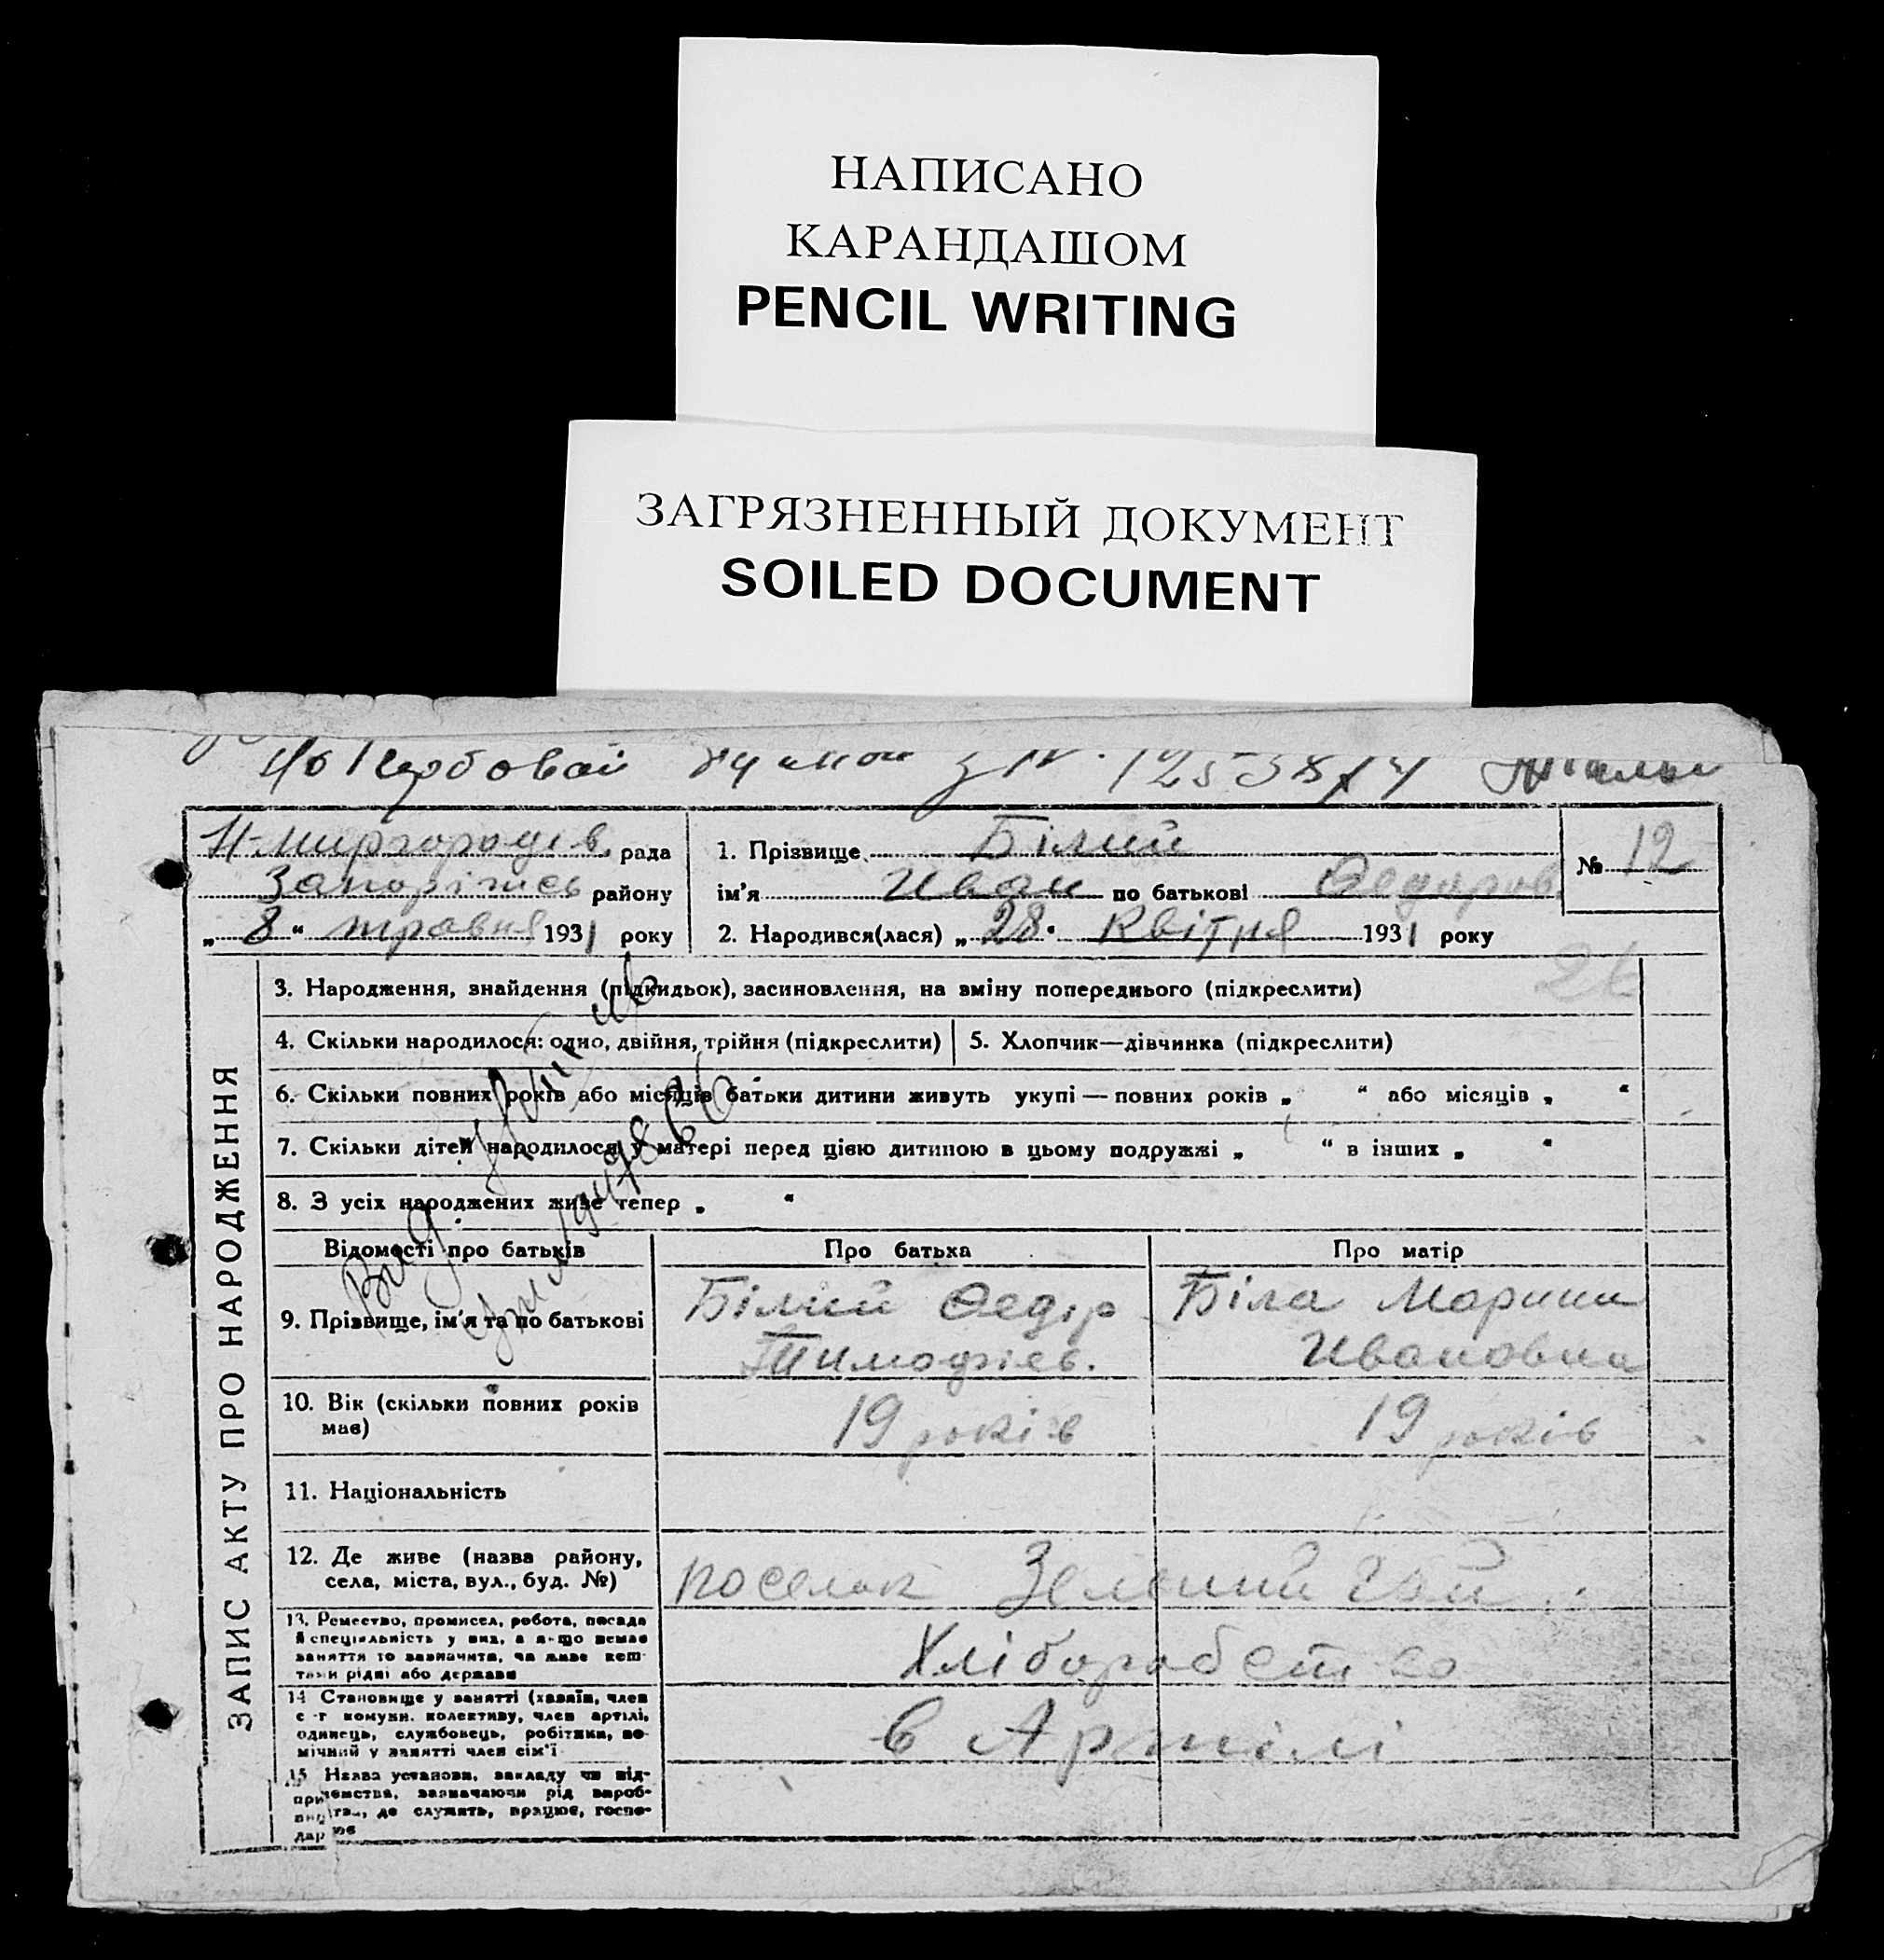 НАПИСАНО
КАРАНДАШОМ
PENCIL WRITING
ЗАГРЯЗНЕННЫЙ ДОКУМЕНТ
SOILED DOCUMENT
Н-Миргородсв. рада
Запорізьк району
„ 8 “ травня 1931 року
1. Прізвище Білий
№ 12
ім'я Иван по батькові Федоров
2. Народився(лася) „ 28 “ Квітня 1931 року
26
ЗАПИС АКТУ ПРО НАРОДЖЕННЯ
3. Народження, знайдення (підкидьок), засиновлення, на зміну попереднього (підкреслити)
4. Скільки народилося: одно, двійня, трійня (підкреслити)
5. Хлопчик—дівчинка (підкреслити)
6. Скільки повних років або місяців батьки дитини живуть укупі — повних років „ “ або місяців „ “
7. Скільки дітей народилося у матері перед цією дитиною в цьому подружжі „ “ в інших „ “
8. З усіх народжених живе тепер „ “
Відомості про батьків
Про батька
Про матір
9. Прізвище, ім'я та по батькові
Білий Федір
Тимофіев.
Біла Марини
Ивановна
10. Вік (скільки повних років
має)
19 років
19 років
11. Національність
12. Де живе (назва району,
села, міста, вул., буд. №)
поселок Зелений Гай
13. Ремество, промисел, робота, посада
й спеціяльність у них, а якщо немає
заняття то зазначити, чи живе кош-
тами рідні або держави
Хліборобство
14 Становище у занятті (хазяїн, член
с.-г комуни. колективу, член артілі,
одинець, службовець, робітник, по-
мічний у занятті член сім'ї
в Артілі
15 Назва установи, закладу чи під-
приємства, зазначаючи рід вироб-
ництва, де служить, працює, госпо-
дарює